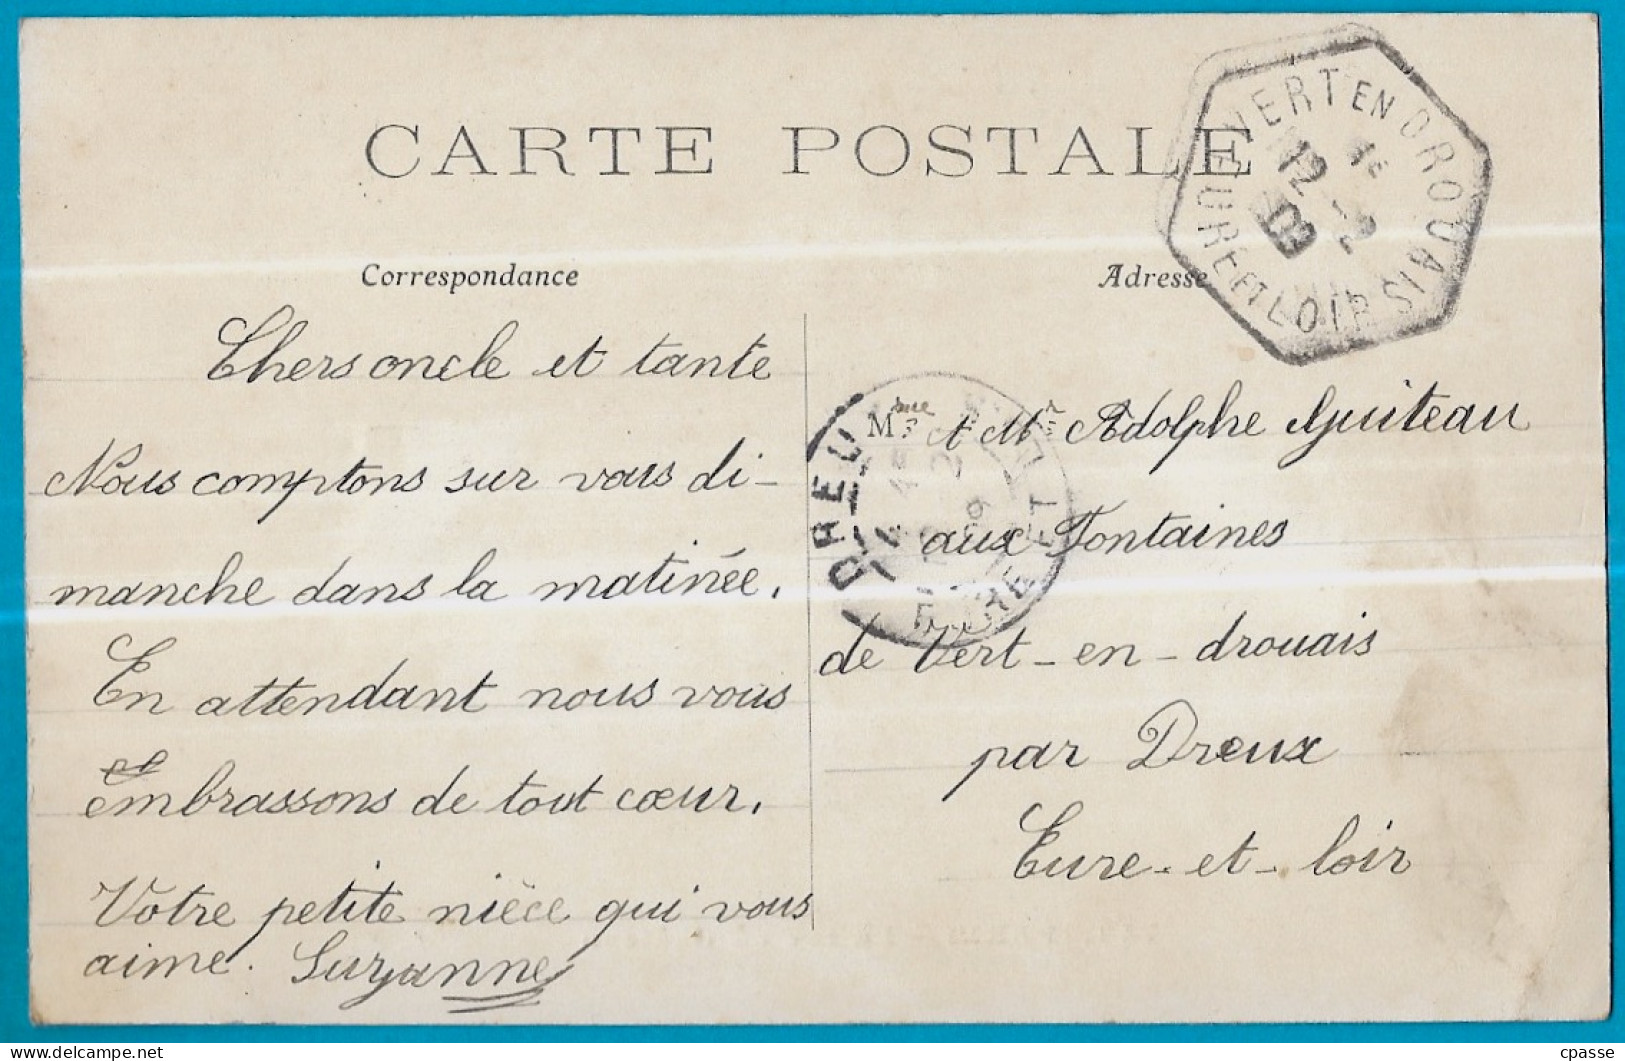 CARTE POSTALE
Correspondance
Chers oncle et tante
Nous comptons sur vous di-
manche dans la matinée.
En attendant nous vous
embrassons de tout cœur.
Votre petite nièce qui vous
aime. Suzanne
Adresse
Mme et Mr Adolphe Guiteau
aux Fontaines
de Vert-en-drouais
par Dreux
Eure-et-loir
VERT EN DROUAIS
EURE ET LOIR
12 -2
09
DREUX
EURE ET
cpasse